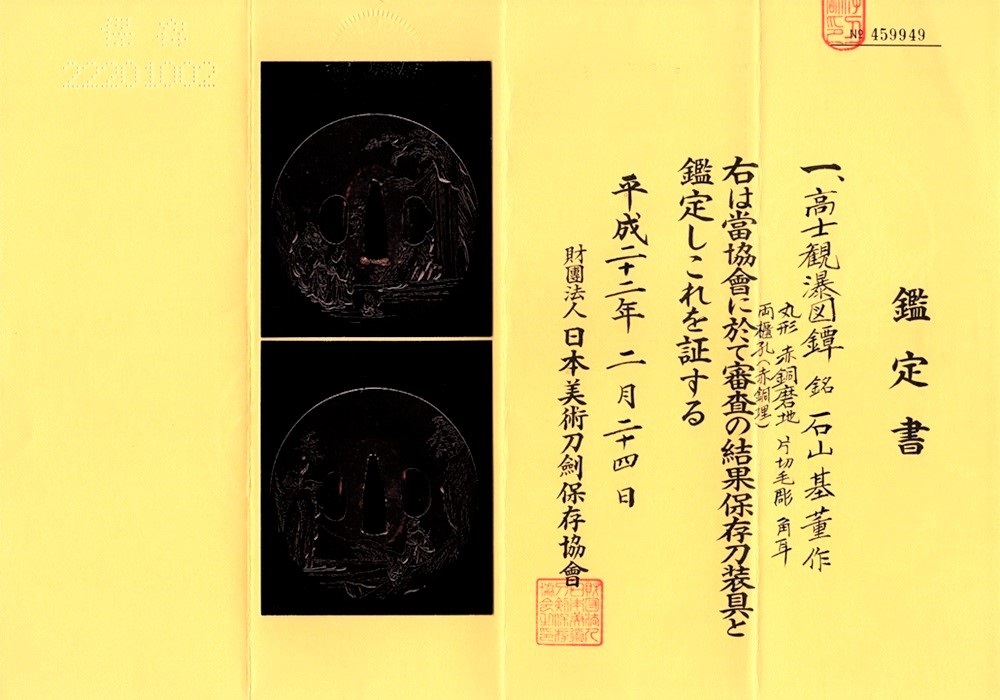 № 459949
鑑定書
一、高士観瀑図鐔 銘 石山基董作
丸形 赤銅磨地 片切毛彫 角耳
両櫃孔(赤銅埋)
右は當協會に於て審査の結果保存刀装具と
鑑定しこれを証する
平成二十二年 二月二十四日
財團法人 日本美術刀劍保存協會
保存
22201002